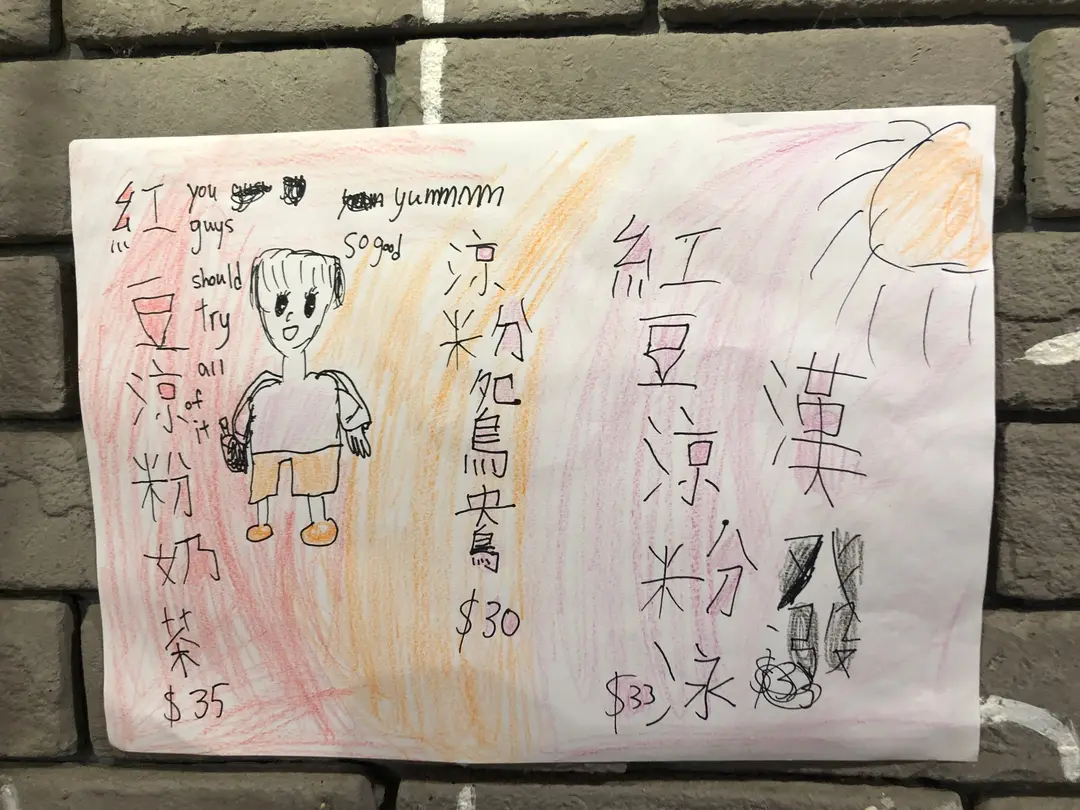 紅豆涼粉奶茶
$35
you
guys
should
try
all
of
it
yummmm
so good
涼粉鴛鴦
$30
紅豆涼粉泳
$33
漢